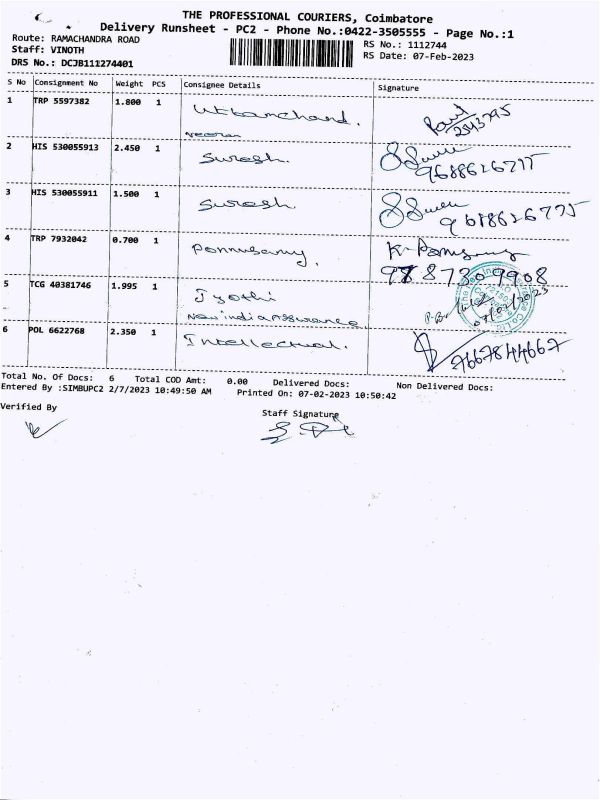 THE PROFESSIONAL COURIERS, Coimbatore
Delivery Runsheet - PC2 - Phone No.:0422-3505555 - Page No.:1
Route: RAMACHANDRA ROAD
Staff: VINOTH
DRS No.: DCJB111274401
RS No.: 1112744
RS Date: 07-Feb-2023
S No Consignment No Weight PCS Consignee Details Signature
1 TRP 5597382 1.800 1 Uttamchand.
2 HIS 530055913 2.450 1 Suresh.
9688626775
3 HIS 530055911 1.500 1 Suresh.
9688626775
4 TRP 7932042 0.700 1 Ponnusamy.
5 TCG 40381746 1.995 1 Jyothi
New india Assurance
6 POL 6622768 2.350 1 Intellectual.
7667844667
Total No. Of Docs: 6 Total COD Amt: 0.00 Delivered Docs: Non Delivered Docs:
Entered By :SIMBUPC2 2/7/2023 10:49:50 AM Printed On: 07-02-2023 10:50:42
Verified By
Staff Signature